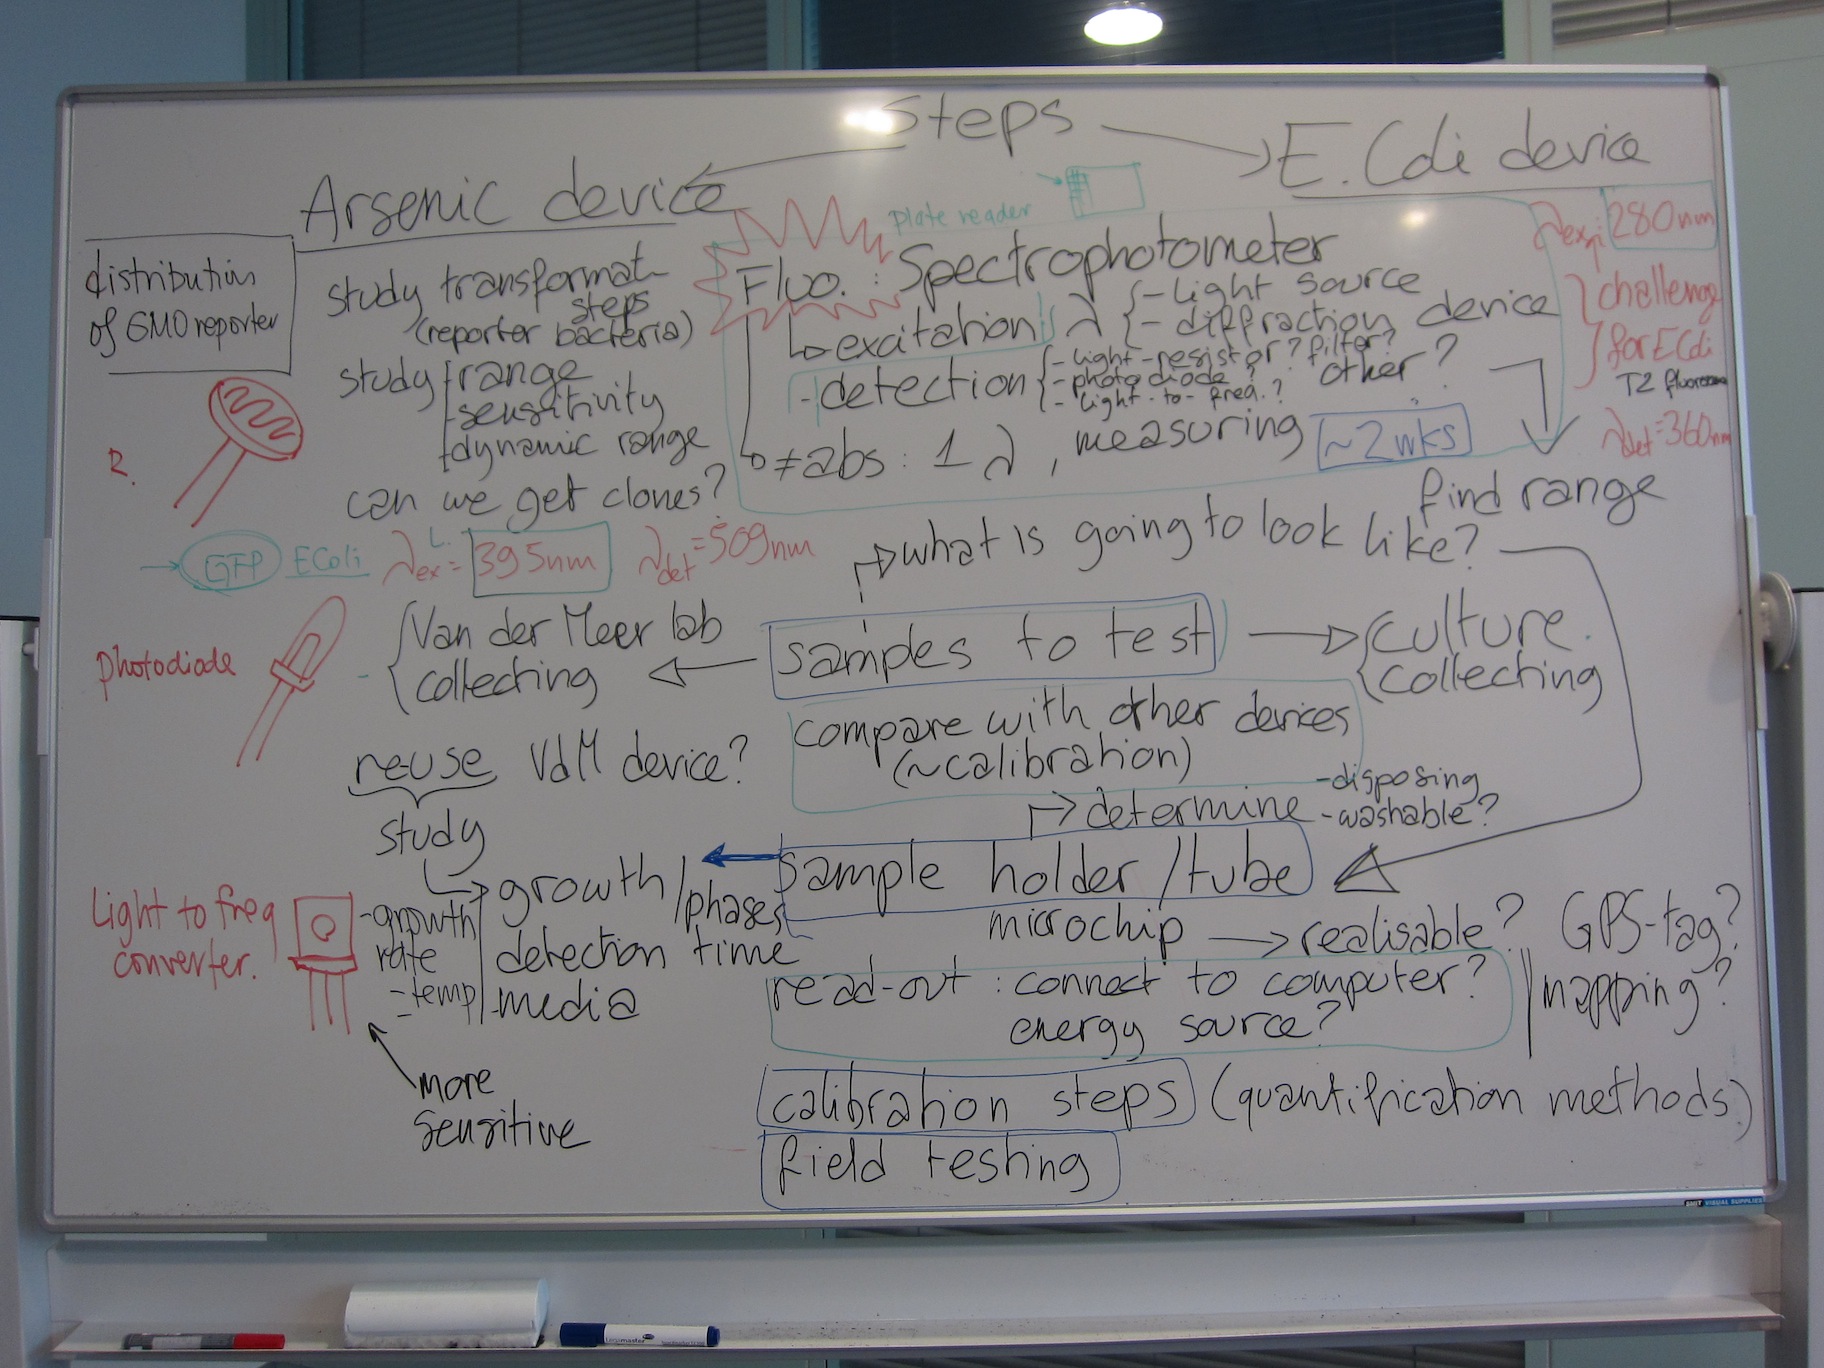 Steps
Arsenic device
E. Coli device
plate reader
distribution
of GMO reporter
study transformat
steps
(reporter bacteria)
study
- range
- sensitivity
- dynamic range
can we get clones?
R.
Fluo. : Spectrophotometer
excitation λ
- light source
- diffraction device
- detection
- light-resistor? filter?
- photodiode?
- light-to-freq.?
other?
≠ abs : 1 λ, measuring
~2 wks
find range
λex = 280nm
challenge
for E Coli
T2
λdet = 360nm
GFP EColi
λex = 395nm
λdet = 509nm
what is going to look like?
photodiode
- Van der Meer lab
collecting
samples to test
culture
collecting
compare with other devices
(~calibration)
reuse VdM device?
study
determine
- disposing
- washable?
sample holder / tube
microchip
realisable?
GPS-tag?
mapping?
Light to freq
converter.
- growth
rate
- temp
growth / phases
detection time
media
more
sensitive
read-out : connect to computer?
energy source?
calibration steps (quantification methods)
field testing
SMIT VISUAL SUPPLIES
Legamaster